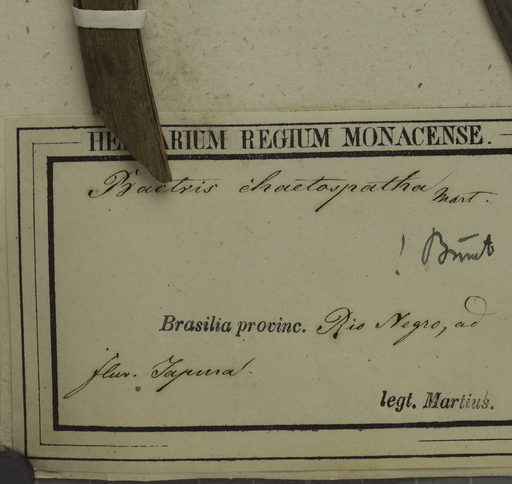 HERBARIUM REGIUM MONACENSE.
Bactris chaetospatha Mart.
! Burret
Brasilia provinc. Rio Negro, ad
fluv. Japura.
legt. Martius.